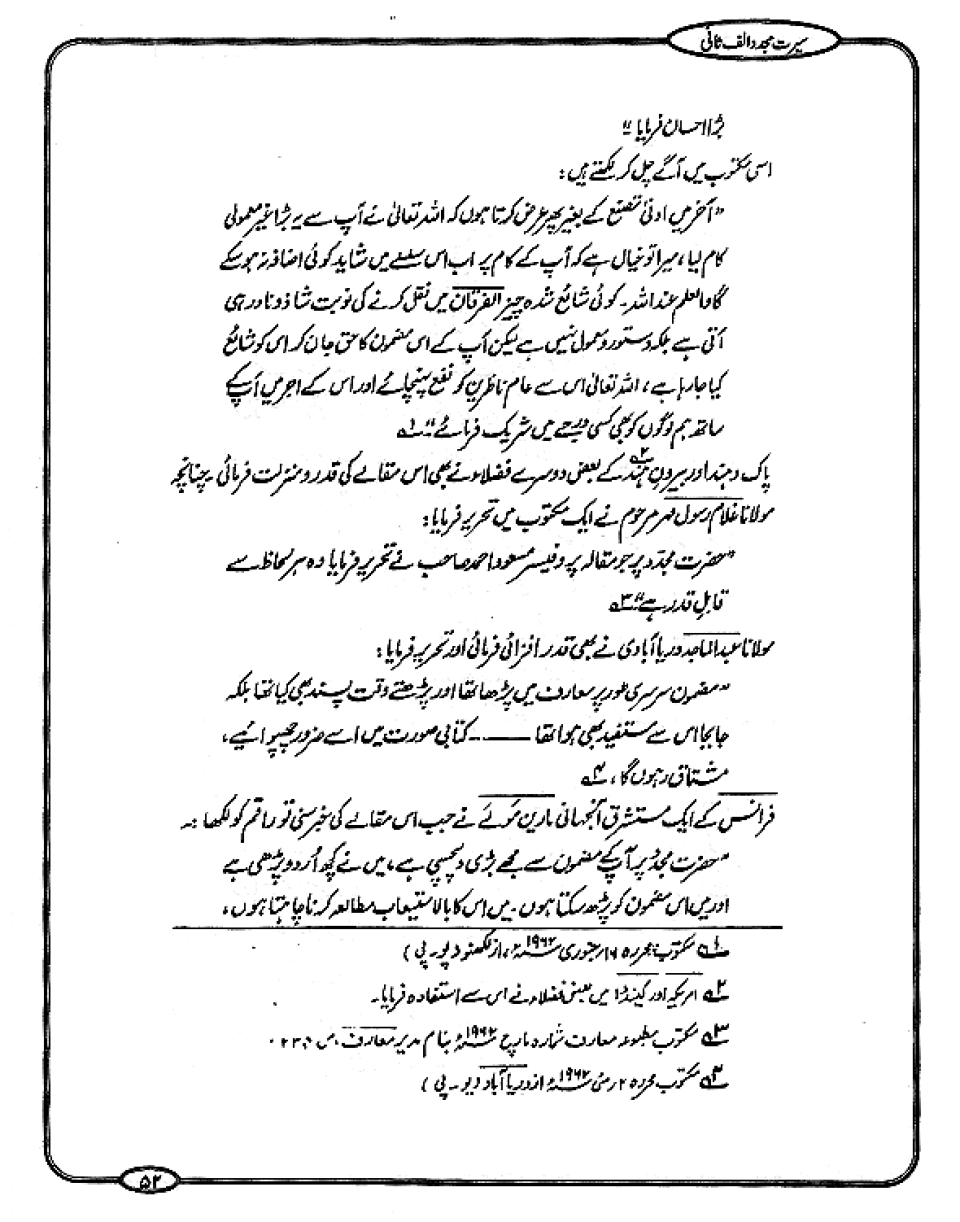 سیرت مجدد الف ثانی
بڑا احسان فرمایا"
اسی مکتوب میں آگے چل کر لکھتے ہیں:
"آخر میں ادنیٰ تصنع کے بغیر پھر عرض کرتا ہوں کہ اللہ تعالیٰ نے آپ سے یہ بڑا غیر معمولی
کام لیا، میرا تو خیال ہے کہ آپ کے کام پر اب اس سلسلے میں شاید کوئی اضافہ نہ ہو سکے
گا والعلم عند اللہ۔ کوئی شائع شدہ چیز الفرقان میں نقل کرنے کی نوبت شاذ و نادر ہی
آتی ہے بلکہ دستور و معمول نہیں ہے لیکن آپ کے اس مضمون کا حق جان کر اس کو شائع
کیا جا رہا ہے، اللہ تعالیٰ اس سے عام ناظرین کو نفع پہنچائے اور اس کے اجر میں آپ کے
ساتھ ہم لوگوں کو بھی کسی درجے میں شریک فرمائے" ۱؎
پاک و ہند اور بیرون ہند۲؎ کے بعض دوسرے فضلاء نے بھی اس مقالے کی قدر و منزلت فرمائی۔ چنانچہ
مولانا غلام رسول مہر مرحوم نے ایک مکتوب میں تحریر فرمایا:
"حضرت مجدد پر جو مقالہ پروفیسر مسعود احمد صاحب نے تحریر فرمایا وہ ہر لحاظ سے
قابلِ قدر ہے" ۳؎
مولانا عبدالماجد دریا آبادی نے بھی قدر افزائی فرمائی اور تحریر فرمایا:
"مضمون سرسری طور پر معارف میں پڑھا تھا اور پڑھتے وقت پسند بھی کیا تھا بلکہ
جابجا اس سے مستفید بھی ہوا تھا ــــــ۔۔ کتابی صورت میں اسے ضرور چھپوائیے،
مشتاق رہوں گا، ۴؎
فرانس کے ایک مستشرق آنجہانی مارین مولے نے جب اس مقالے کی خبر سنی تو راقم کو لکھا :۔
"حضرت مجدد پر آپ کے مضمون سے مجھے بڑی دلچسپی ہے، میں نے کچھ اُردو پڑھی ہے
اور میں اس مضمون کو پڑھ سکتا ہوں۔ میں اس کا بالاستیعاب مطالعہ کرنا چاہتا ہوں،
۱؎ مکتوب محررہ ۱۶ جنوری ۱۹۶۲ء، از لکھنؤ (یو۔ پی)
۲؎ امریکہ اور کینڈا میں بعض فضلاء نے اس سے استفادہ فرمایا۔
۳؎ مکتوب مطبوعہ معارف شمارہ مارچ ۱۹۶۲ء بنام مدیر معارف، ص
۴؎ مکتوب محررہ ۲ مئی ۱۹۶۲ء از دریا آباد (یو۔ پی)
۵۲